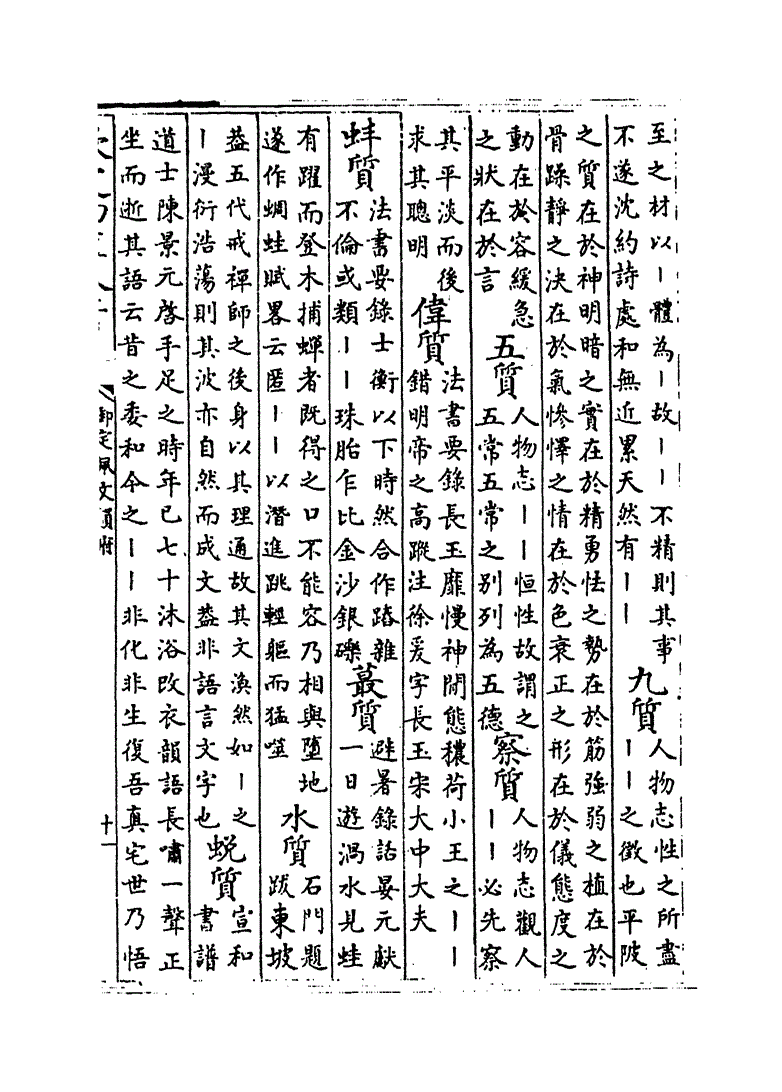 至之材以丨體為丨故丨丨不精則其事
不遂沈約詩處和無近累天然有丨丨
九質
人物志性之所盡
丨丨之徵也平陂
之質在於神明暗之實在於精勇怯之勢在於筋強弱之植在於
骨躁靜之決在於氣慘懌之情在於色衰正之形在於儀態度之
動在於容緩急
之狀在於言
五質
人物志丨丨恒性故謂之
五常五常之别列為五德
察質
人物志觀人
丨丨必先察
其平淡而後
求其聰明
偉質
法書要錄長玉靡慢神閒態穠荷小王之丨丨
錯明帝之高蹤注徐爰字長玉宋大中大夫
蚌質
法書要錄士衡以下時然合作踳雜
不倫或類丨丨珠胎乍比金沙銀礫
蕞質
避暑錄話晏元獻
一日遊渦水見蛙
有躍而登木捕蟬者既得之口不能容乃相與墮地
遂作蜩蛙賦畧云匿丨丨以潛進跳輕軀而猛噬
水質
石門題
跋東坡
葢五代戒禪師之後身以其理通故其文渙然如丨之
丨漫衍浩蕩則其波亦自然而成文葢非語言文字也
蜕質
宣和
書譜
道士陳景元啓手足之時年已七十沐浴改衣韻語長嘯一聲正
坐而逝其語云昔之委和今之丨丨非化非生復吾真宅世乃悟
御定佩文韻府
十一